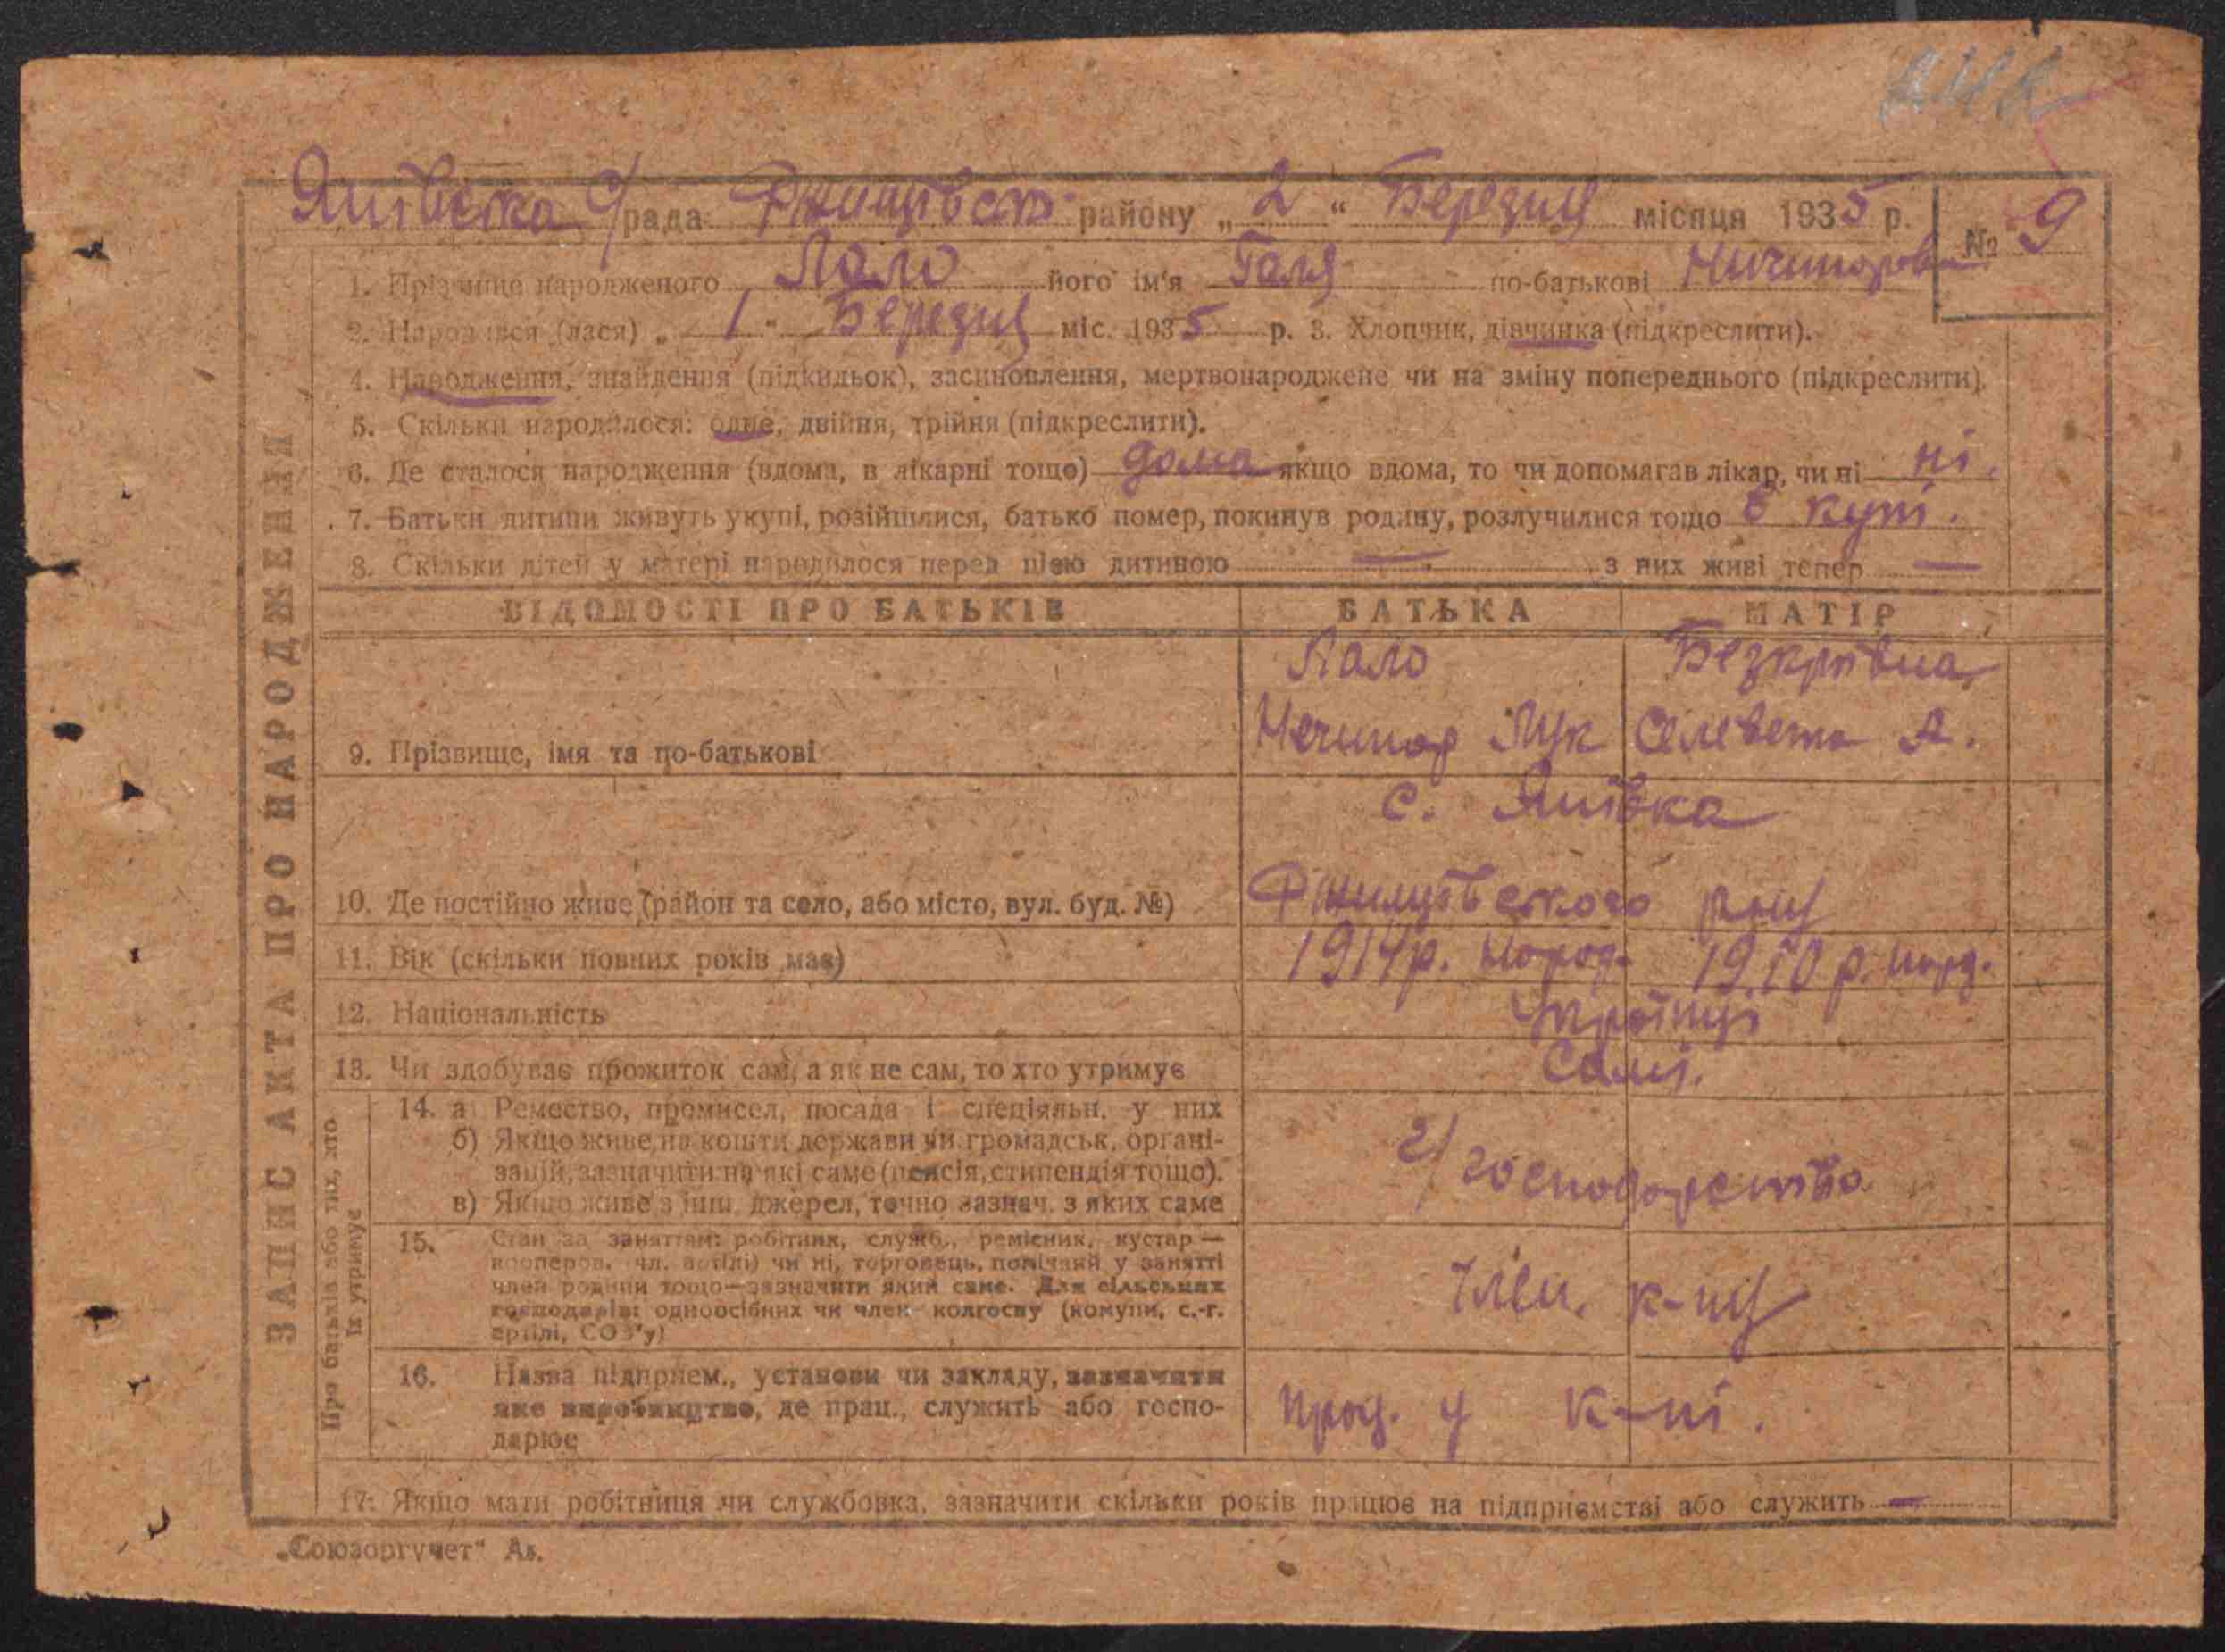 Яшівська с/рада Ржищівськ. району „2“ Березня місяця 1935 р. № 9
1. Прізвище народженого Лало його ім'я Галя по-батькові Ничипоровна
2. Народився (лася) „1“ Березня міс. 1935 р. 3. Хлопчик, дівчинка (підкреслити).
4. Народження, знайдення (підкидьок), засиновлення, мертвонароджене чи на зміну попереднього (підкреслити).
5. Скільки народилося: одне, двійня, трійня (підкреслити).
6. Де сталося народження (вдома, в лікарні тощо) дома якщо вдома, то чи допомагав лікар, чи ні ні.
7. Батьки дитини живуть укупі, розійшлися, батько помер, покинув родину, розлучилися тощо в купі.
8. Скільки дітей у матері народилося перед цією дитиною — з них живі тепер —
ЗАПИС АКТА ПРО НАРОДЖЕННЯ
ВІДОМОСТІ ПРО БАТЬКІВ БАТЬКА МАТІР
Лало Безкрівна
9. Прізвище, імя та по-батькові Нечипор Лук Селевета А.
с. Яшівка
10. Де постійно живе (район та село, або місто, вул. буд. №) Ржищівського р-ну
11. Вік (скільки повних років має) 1914 р. народ. 1910 р. нард.
12. Національність Українці
13. Чи здобуває прожиток сам, а як не сам, то хто утримує Самі.
Про батьків або тих, хто
їх утримує
14. а Ремество, промисел, посада і спеціяльн. у них
б) Якщо живе на кошти держави чи громадськ. органі-
зацій, зазначити на які саме (пенсія, стипендія тощо).
в) Якщо живе з інш. джерел, точно зазнач. з яких саме
с/господарство
15. Стан за заняттям: робітник, служб., ремісник, кустар —
кооперов. чл. артілі) чи ні, торговець, помічний у занятті
член родини тощо—зазначити який саме. Для сільських
господарів: одноосібних чи член колгоспу (комуни, с.-г.
артілі, СОЗ'у)
Член. к-пу
16. Назва підприєм., установи чи закладу, зазначити
яке виробництво, де прац., служить або госпо-
дарює
Прац. у к-пі.
17. Якщо мати робітниця чи службовка, зазначити скільки років працює на підприємстві або служить —
„Союзоргучет“